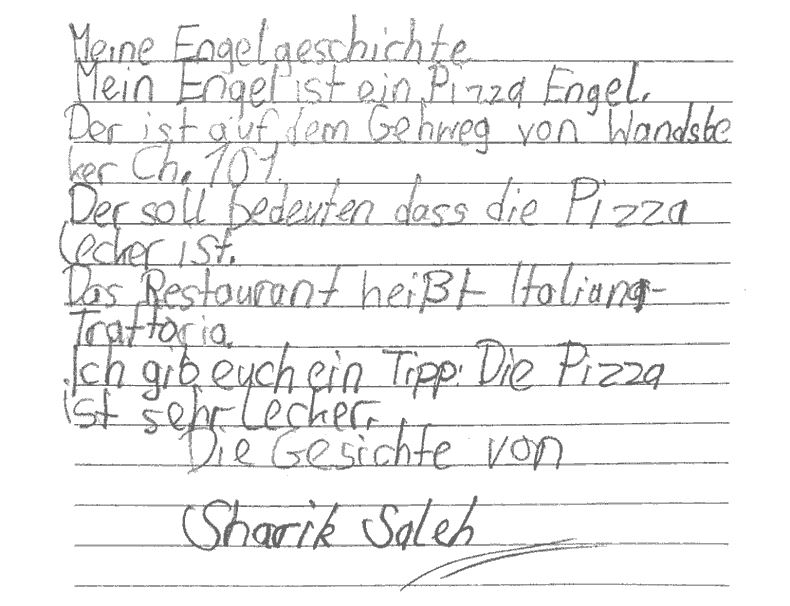 Meine Engelgeschichte
Mein Engel ist ein Pizza Engel.
Der ist auf dem Gehweg von Wandsbe
ker Ch. 101.
Der soll bedeuten dass die Pizza
lecker ist.
Das Restaurant heißt Italiana-
Trattoria.
Ich gib euch ein Tipp: Die Pizza
ist sehr lecker.
Die Gesichte von
Sharik Saleh